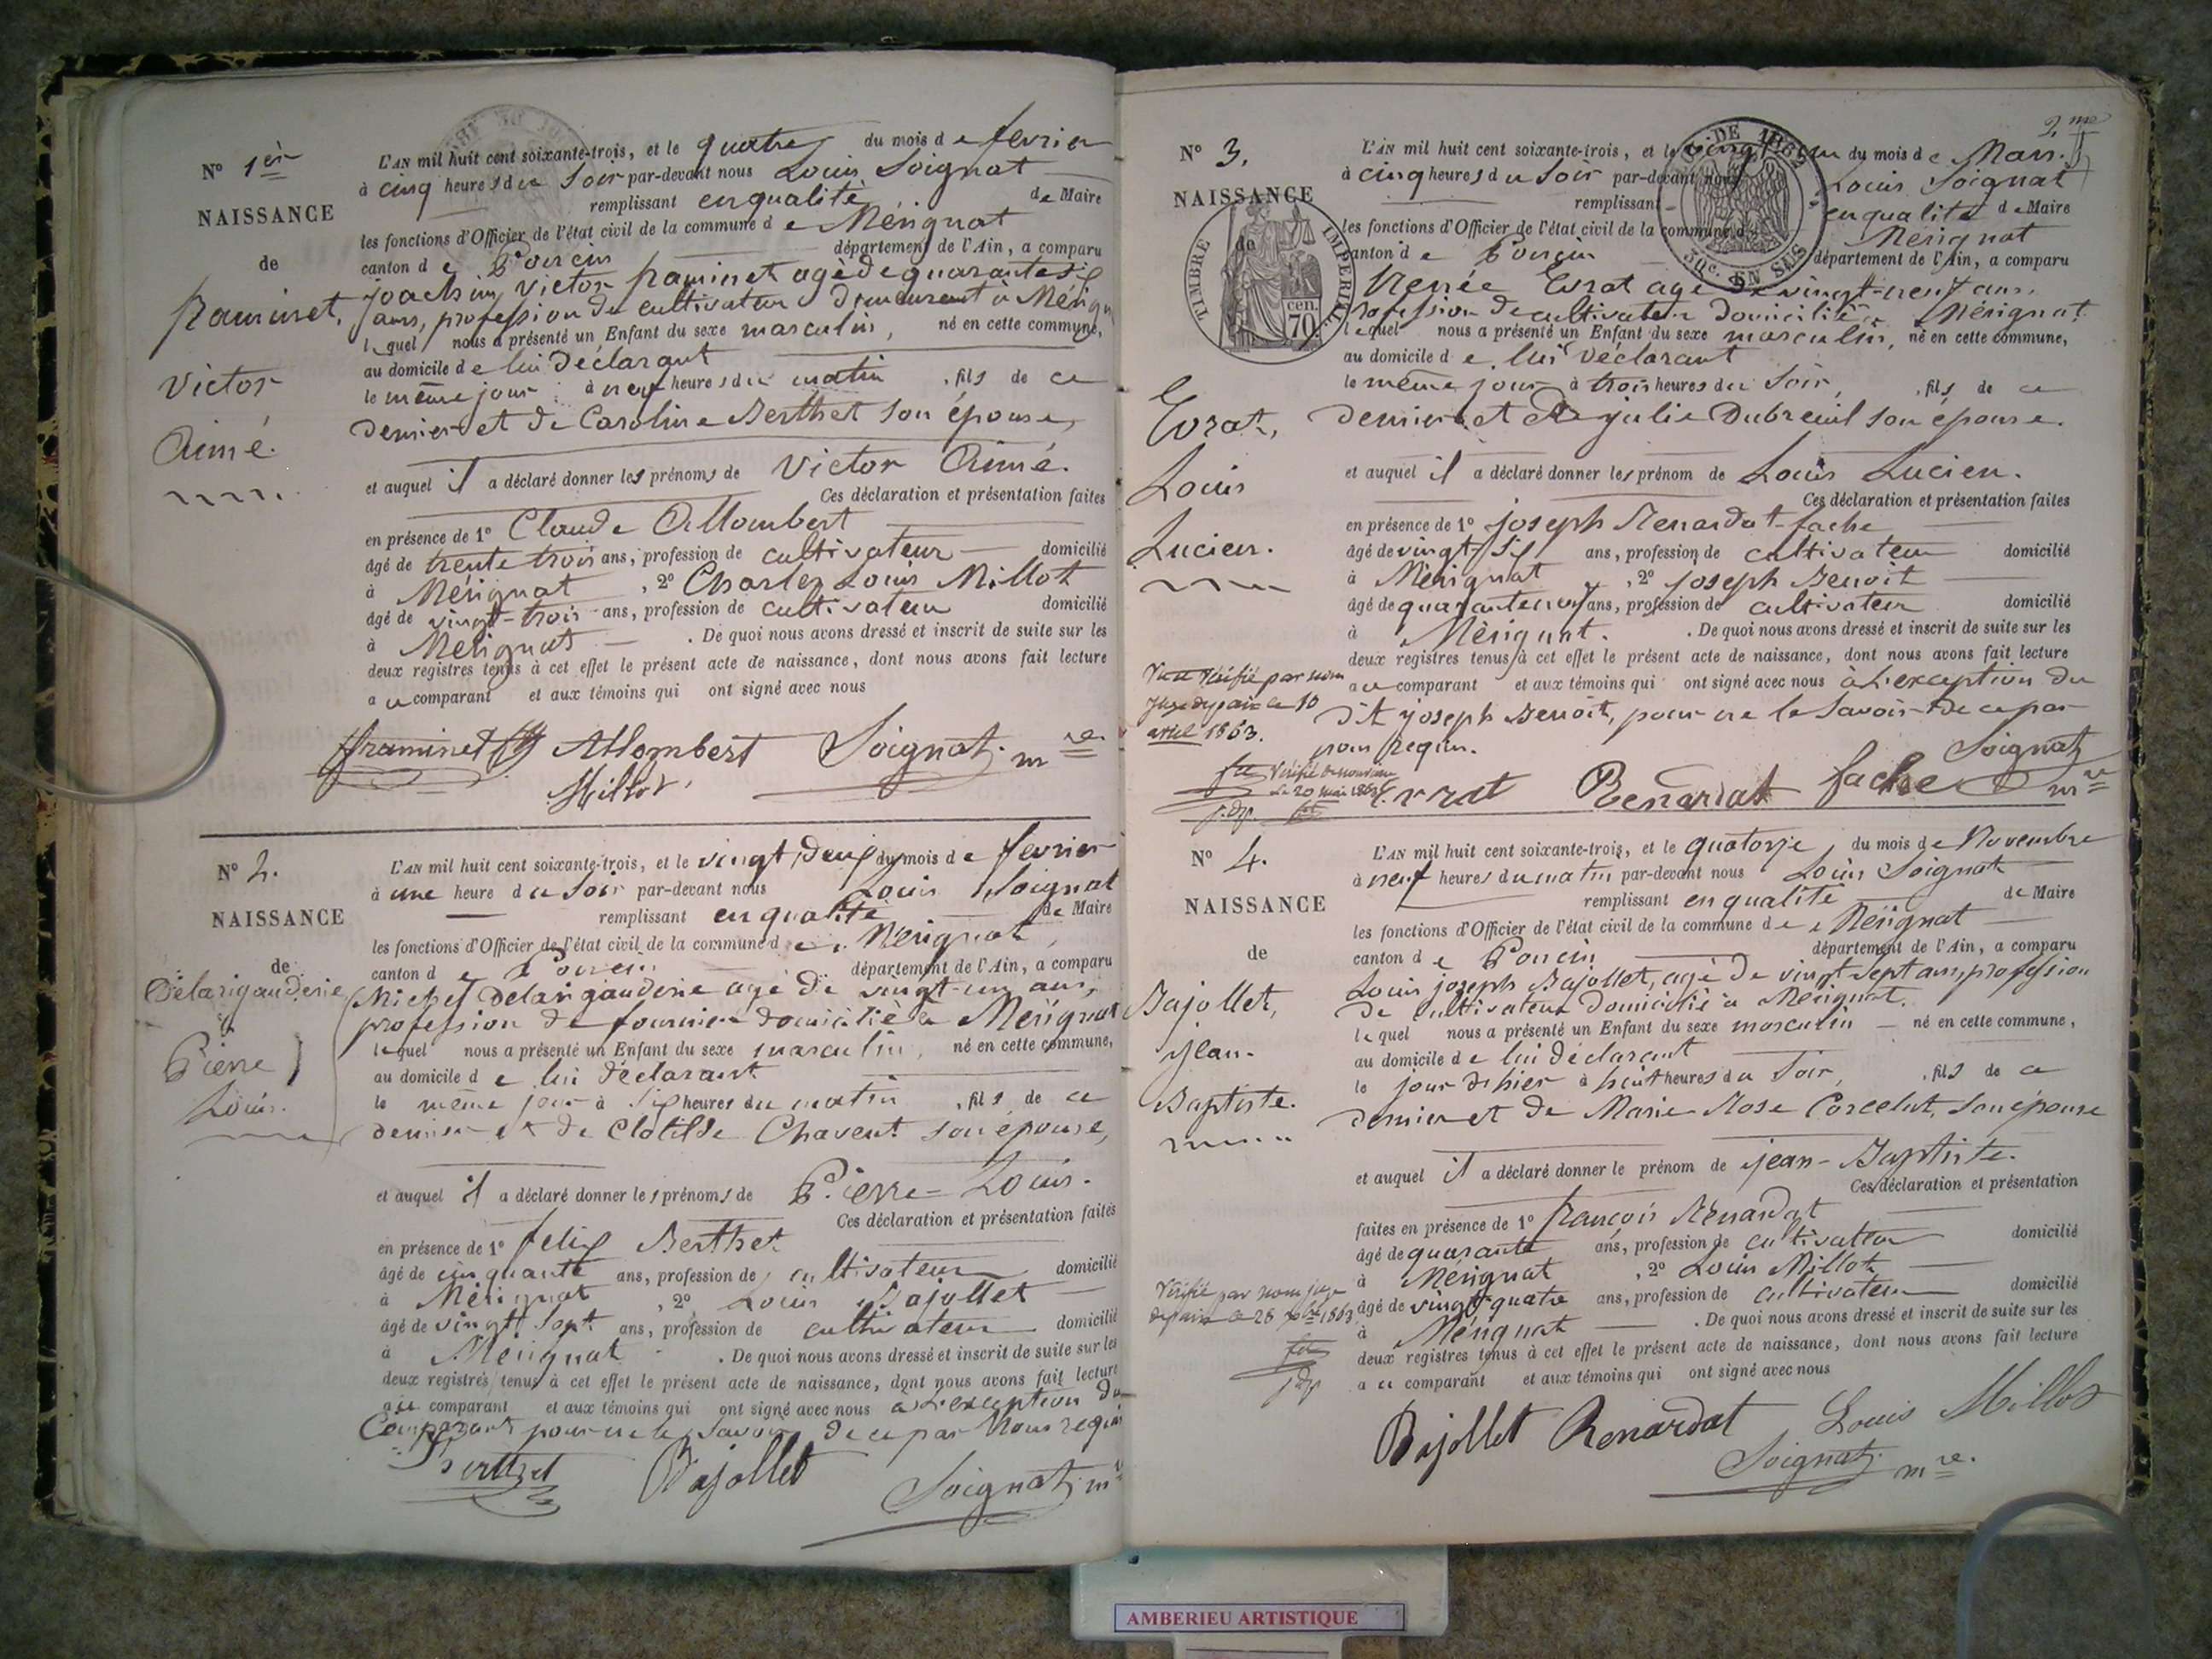 N° 1er
NAISSANCE
de
framinet,
Victor
Aimé.
L'AN mil huit cent soixante-trois, et le quatre du mois de fevrier
à cinq heures du Soir par-devant nous Louis Soignat
remplissant en qualité de Maire
les fonctions d'Officier de l'état civil de la commune de Mérignat
canton de Poncin département de l'Ain, a comparu
joachim victor framinet agé de quarante six
ans, profession de cultivateur demeurant à
lequel nous a présenté un Enfant du sexe masculin, né en cette commune,
au domicile de lui déclarant
le même jour à neuf heures du matin, fils de ce
dernier et de Caroline Berthet son épouse,
et auquel il a déclaré donner les prénoms de Victor Aimé.
Ces déclaration et présentation faites
en présence de 1° Claude Allombert
âgé de trente trois ans, profession de cultivateur domicilié
à Mérignat, 2° Charles Louis Millot
âgé de vingt-trois ans, profession de cultivateur domicilié
à Mérignat. De quoi nous avons dressé et inscrit de suite sur les
deux registres tenus à cet effet le présent acte de naissance, dont nous avons fait lecture
au comparant et aux témoins qui ont signé avec nous
framinet Allombert Soignat. mre
Millot
N° 2.
NAISSANCE
de
Delarigauderie
Pierre
Louis.
L'AN mil huit cent soixante-trois, et le vingt, deux du mois de fevrier
à une heure du Soir par-devant nous Louis Soignat
remplissant en qualité de Maire
les fonctions d'Officier de l'état civil de la commune de Mérignat,
canton de Poncin département de l'Ain, a comparu
Michel Delarigauderie agé de vingt-un ans,
profession de domicilié à Mérignat
lequel nous a présenté un Enfant du sexe masculin, né en cette commune,
au domicile de lui déclarant
le même jour à Six heures du matin, fils de ce
dernier et de Clotilde Chavent son épouse,
et auquel il a déclaré donner les prénoms de Pierre-Louis.
Ces déclaration et présentation faites
en présence de 1° felix Berthet
âgé de cinquante ans, profession de cultivateur domicilié
à Mérignat, 2° Louis Bajollet
âgé de vingt Sept ans, profession de cultivateur domicilié
à Mérignat. De quoi nous avons dressé et inscrit de suite sur les
deux registres tenus à cet effet le présent acte de naissance, dont nous avons fait lecture
au comparant et aux témoins qui ont signé avec nous à L'exception du
Comparant pour ne le Savoir de ce par Nous requis
Berthet Bajollet Soignat. mre
2me
N° 3.
NAISSANCE
de
TIMBRE IMPERIAL
70 cen.
Evrat,
Louis
Lucien.
L'AN mil huit cent soixante-trois, et le du mois de Mars.
à cinq heures du Soir par-devant nous Louis Soignat
remplissant en qualité de Maire
les fonctions d'Officier de l'état civil de la commune de Mérignat
canton de Poncin département de l'Ain, a comparu
Evrat agé de vingt-neuf ans,
profession de cultivateur domicilié à Mérignat
lequel nous a présenté un Enfant du sexe masculin, né en cette commune,
au domicile de lui déclarant
le même jour à trois heures du Soir, fils de ce
dernier et de julie Dubreuil son épouse.
et auquel il a déclaré donner les prénom de Louis Lucien.
Ces déclaration et présentation faites
en présence de 1° joseph Renardat-fache
âgé de vingt-Six ans, profession de cultivateur domicilié
à Mérignat, 2° joseph Benoit
âgé de quarante neuf ans, profession de cultivateur domicilié
à Mérignat. De quoi nous avons dressé et inscrit de suite sur les
deux registres tenus à cet effet le présent acte de naissance, dont nous avons fait lecture
au comparant et aux témoins qui ont signé avec nous à L'exception du
dit joseph Benoit, pour ne le Savoir de ce par
nous requis.
Vérifié par nous
juge de paix le 10
avril 1863.
Evrat Renardat fache Soignat mre
N° 4.
NAISSANCE
de
Bajollet,
jean-
Baptiste.
L'AN mil huit cent soixante-trois, et le quatorze du mois de Novembre
à neuf heures du matin par-devant nous Louis Soignat
remplissant en qualité de Maire
les fonctions d'Officier de l'état civil de la commune de Mérignat
canton de Poncin département de l'Ain, a comparu
Louis joseph Bajollet, agé de vingt-sept ans, profession
de cultivateur domicilié à Mérignat.
lequel nous a présenté un Enfant du sexe masculin né en cette commune,
au domicile de lui déclarant
le jour d'hier à huit heures du Soir, fils de ce
dernier et de Marie Rose Corcelut, son épouse
et auquel il a déclaré donner le prénom de jean-Baptiste.
Ces déclaration et présentation
faites en présence de 1° françois Renardat
âgé de quarante ans, profession de cultivateur domicilié
à Mérignat, 2° Louis Millot
âgé de vingt-quatre ans, profession de cultivateur domicilié
à Mérignat. De quoi nous avons dressé et inscrit de suite sur les
deux registres tenus à cet effet le présent acte de naissance, dont nous avons fait lecture
au comparant et aux témoins qui ont signé avec nous
Vérifié par nous juge
de paix le 28 1863
Bajollet Renardat Louis Millot
Soignat. mre.
AMBERIEU ARTISTIQUE